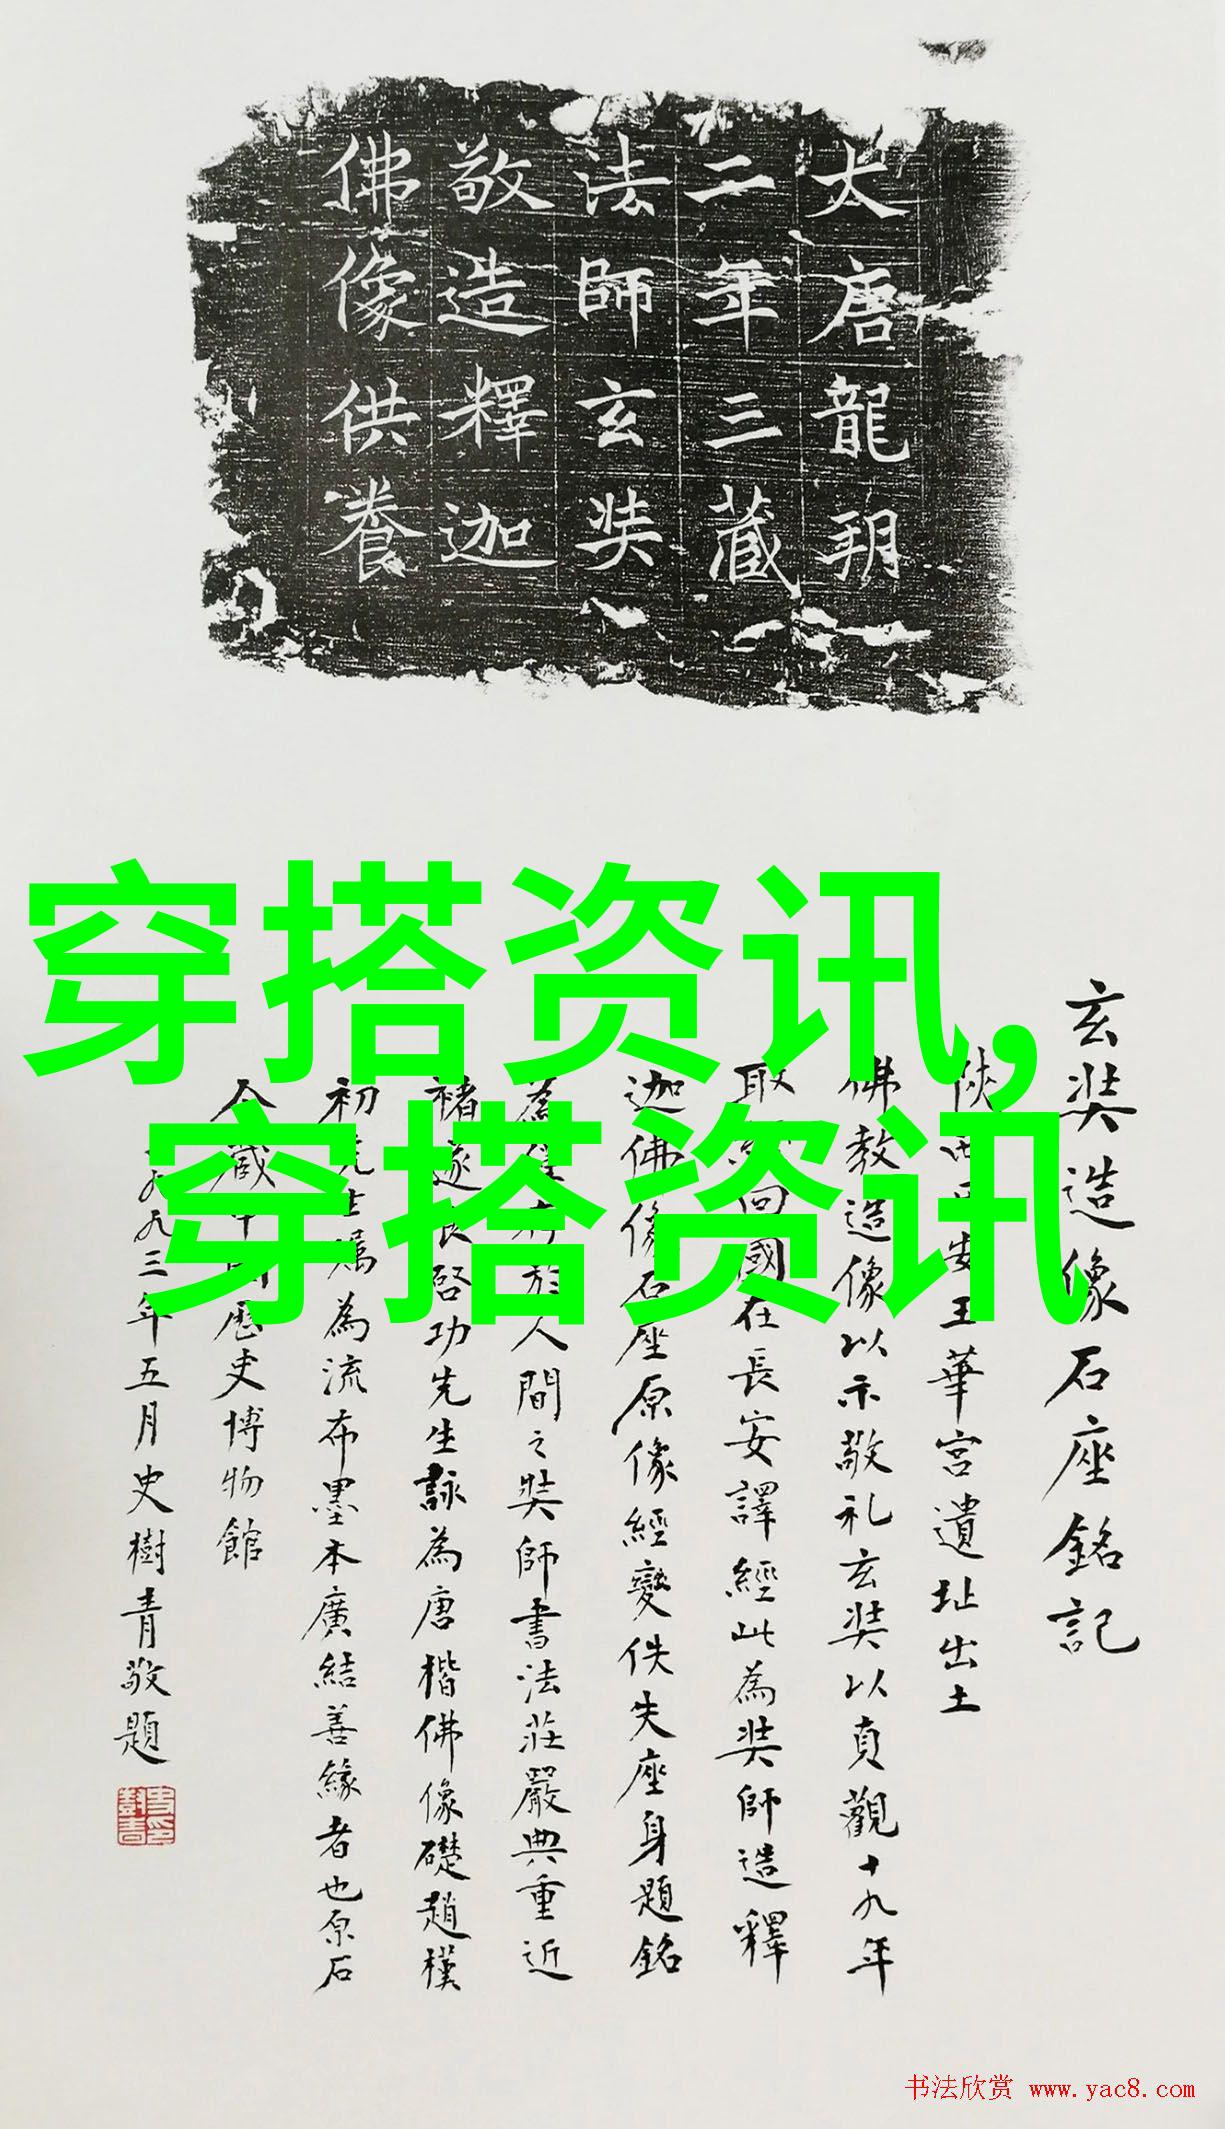 大唐龍朔
二年三藏
法師玄奘
敬造釋迦
佛像供養
穿搭资讯,
穿搭资讯
玄奘造像石座銘記
陝西 安玉華宮遺址出土
佛教造像以示敬礼玄奘以貞觀十九年
取 回國在長安譯經此為奘師造釋
迦佛像石座原像經變佚失座身題銘
為 於人間之奘師書法莊嚴典重近
褚遂良啓功先生詠為唐楷佛像礎趙樸
初先生屬為流布墨本廣結善緣者也原石
今藏中國歷史博物館
一九九三年五月史樹青敬題
书法欣赏 www.yac8.com